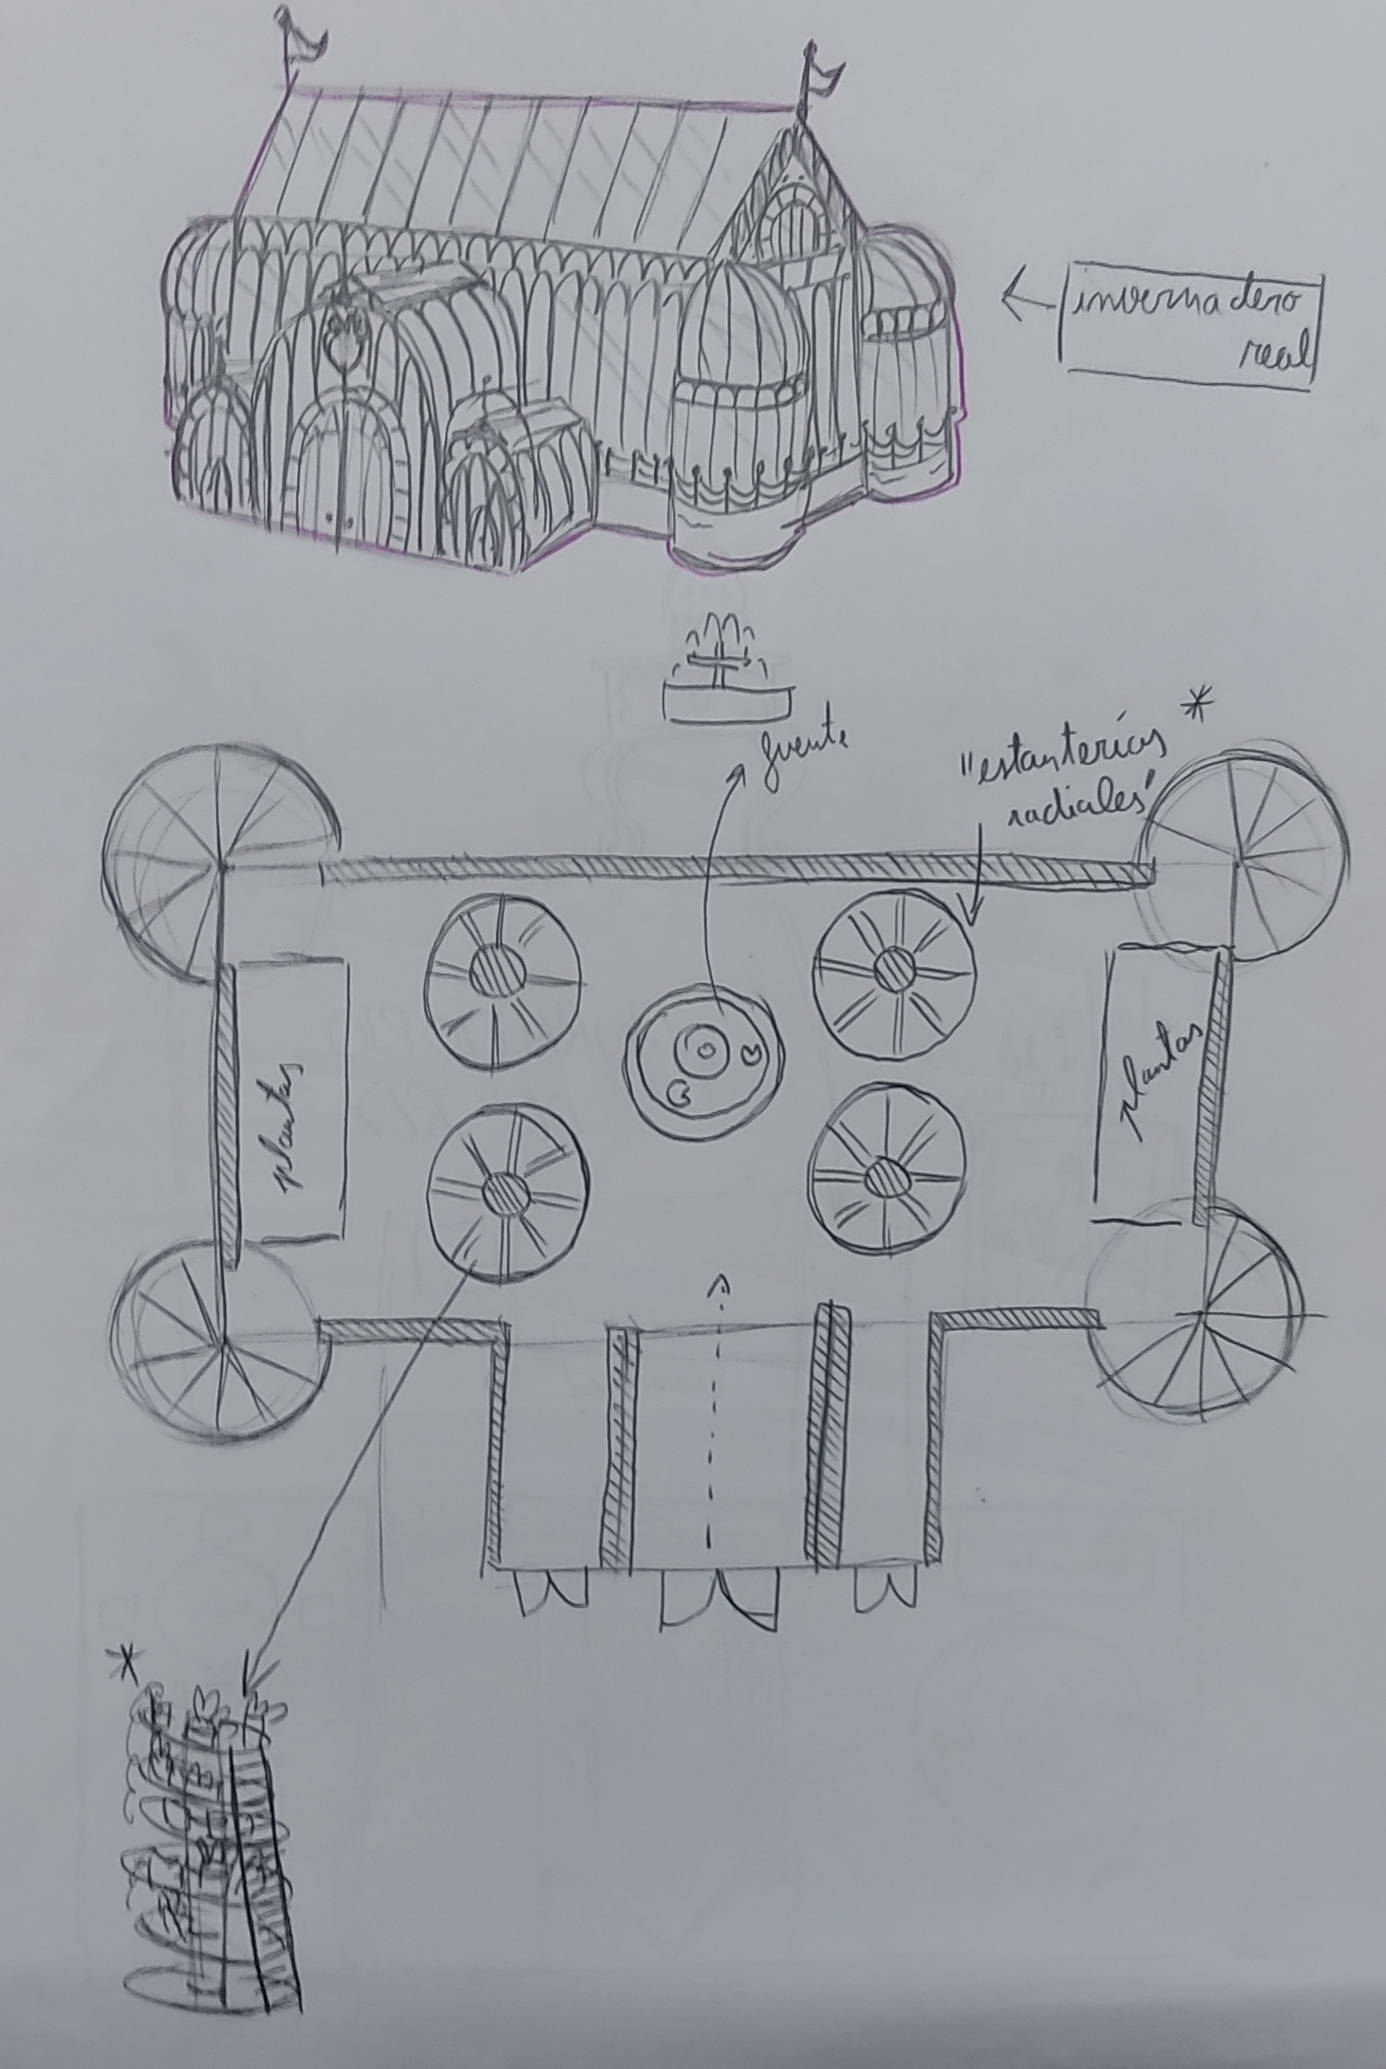 invernadero
real
fuente
"estanterias *
radiales"
plantas
plantas
*